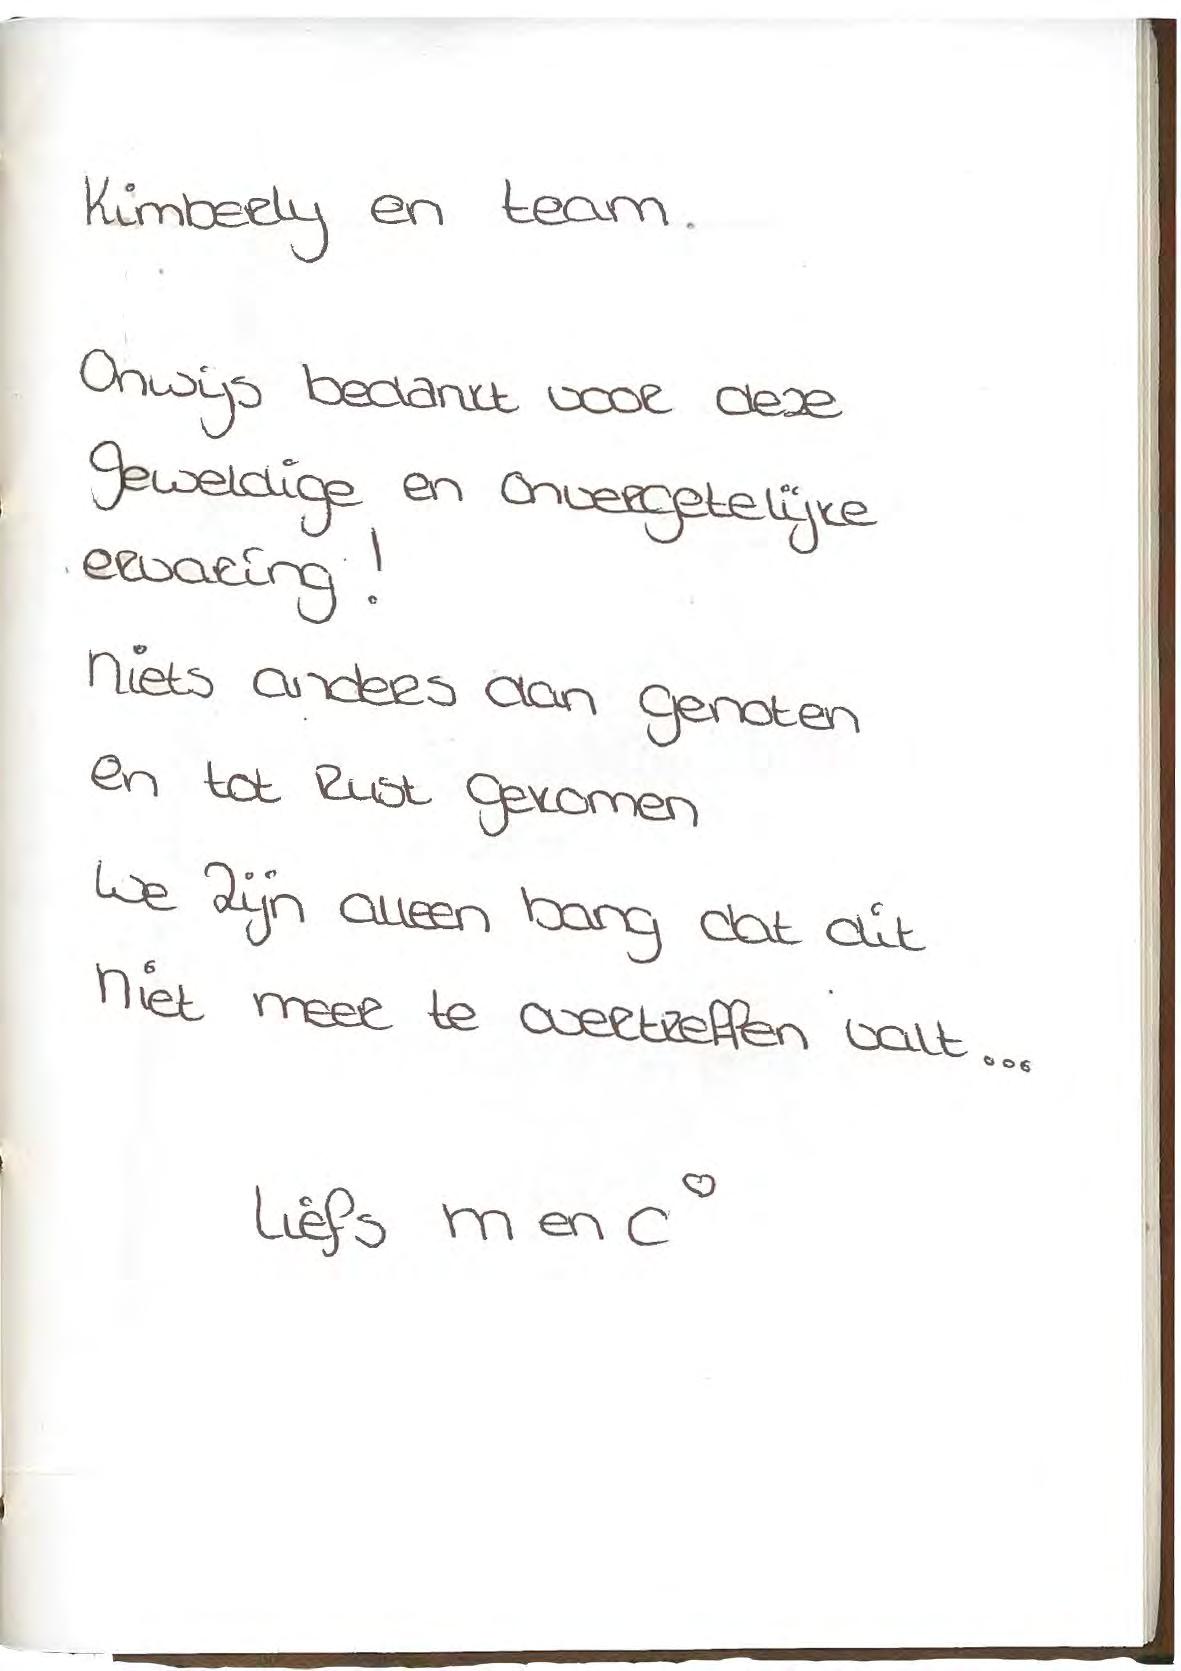 Kimberly en team.
Onwijs bedankt voor deze
geweldige en onvergetelijke
ervaring!
Niets anders dan genoten
en tot rust gekomen
We zijn alleen bang dat dit
niet meer te overtreffen valt...
Liefs M en C ♡